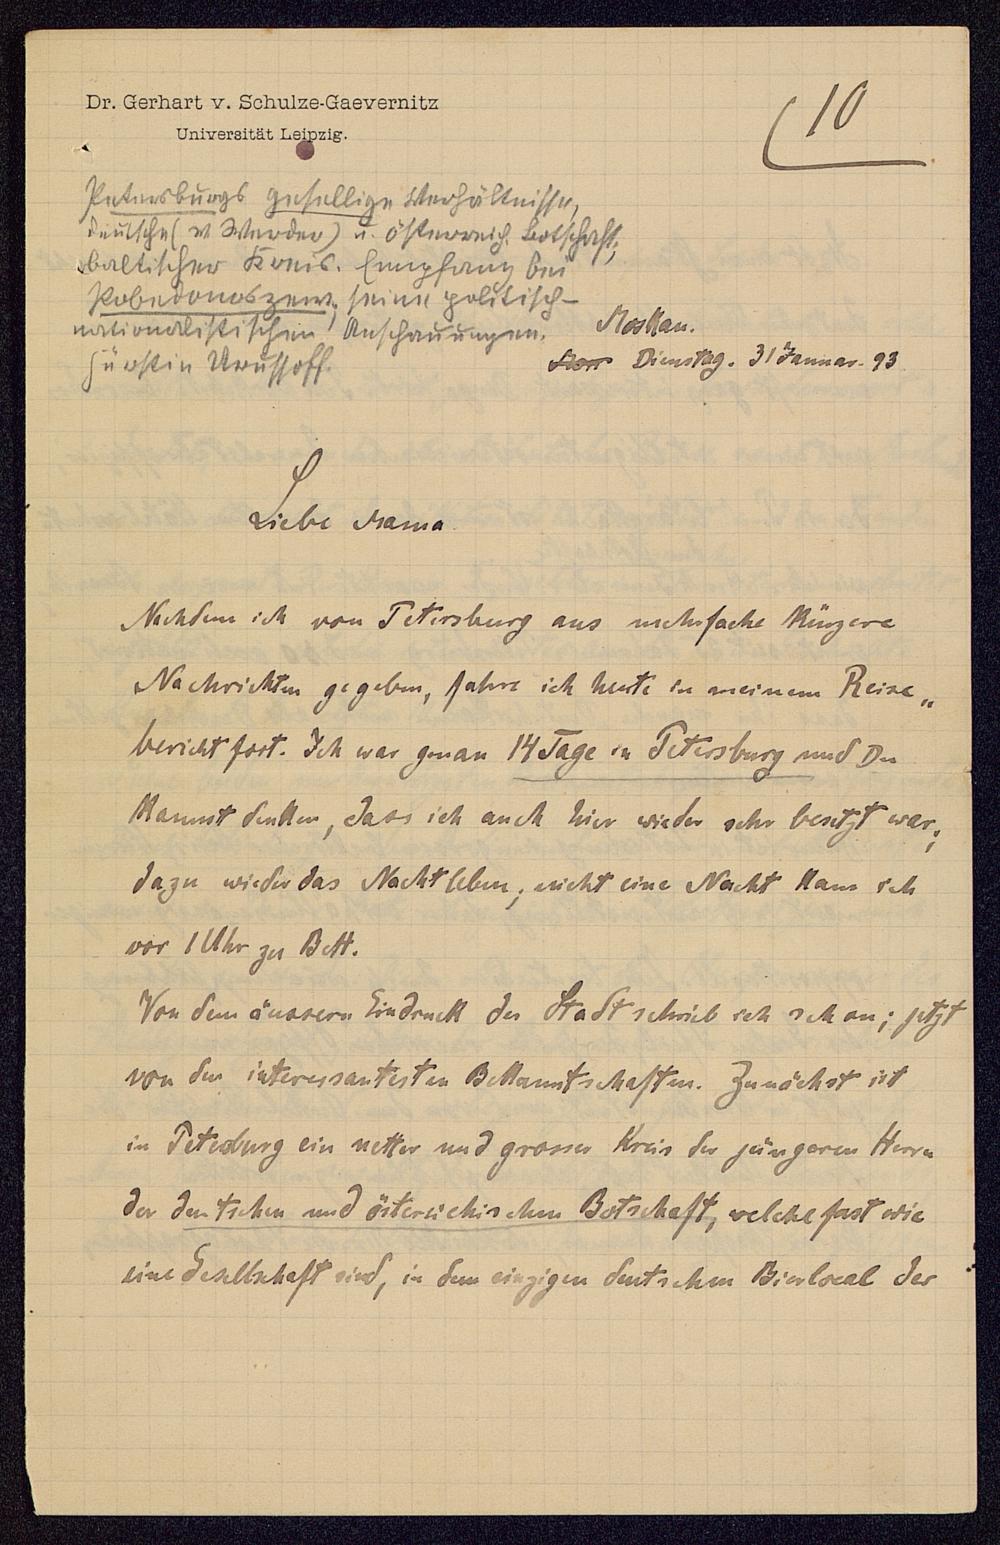 Dr. Gerhart v. Schulze-Gaevernitz
Universität Leipzig.
10
Petersburgs gesellige Verhältnisse,
deutsche (v Werder) u. österreich. Botschaft,
baltischer Kreis. Empfang bei
Pobedonoszew, seine politisch-
nationalistischen Anschauungen.
Fürstin Urussoff.
Moskau.
Dienstag. 31 Januar. 93
Liebe Mama
Nachdem ich von Petersburg aus mehrfache kürzere
Nachrichten gegeben, fahre ich heute in meinem Reise„
bericht fort. Ich war genau 14 Tage in Petersburg und Du
kannst denken, dass ich auch hier wieder sehr besetzt war;
dazu wieder das Nachtleben; nicht eine Nacht kam ich
vor 1 Uhr zu Bett.
Von dem äussern Eindruck der Stadt schrieb ich schon; jetzt
von den interessantesten Bekanntschaften. Zunächst ist
in Petersburg ein netter und grosser Kreis der jüngeren Herrn
der deutschen und östereichischen Botschaft, welche fast wie
eine Gesellschaft sind, in dem einzigen deutschen Bierlocal der